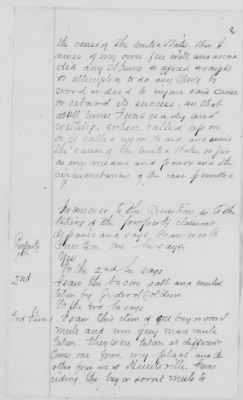 2
the cause of the United States. this I
of my own free will and accord
did any thing or offered or sought
or attempted to do any thing by
word or deed to injure said cause
or retard its success, an that
at all times I was ready and
willing, when called upon
or if called upon to aid and assist
the cause of the United States so far
as my means and power and the
circumstances of the case permitted
In answer to the Question as to the
taking of the property claimant
deposes and says. In answer to
Question one he says.
Yes
Property
To the 2nd he says
2nd
I saw the bacon salt and mules
taken by Federal Soldiers
To the 3rd he says
3rd Item
I saw this item of one bay or sorrel
mule and one grey mare mule
taken they were taken at different
times one from my place and the
other from me at Huntsville. I was
riding the bay or sorrel mule to